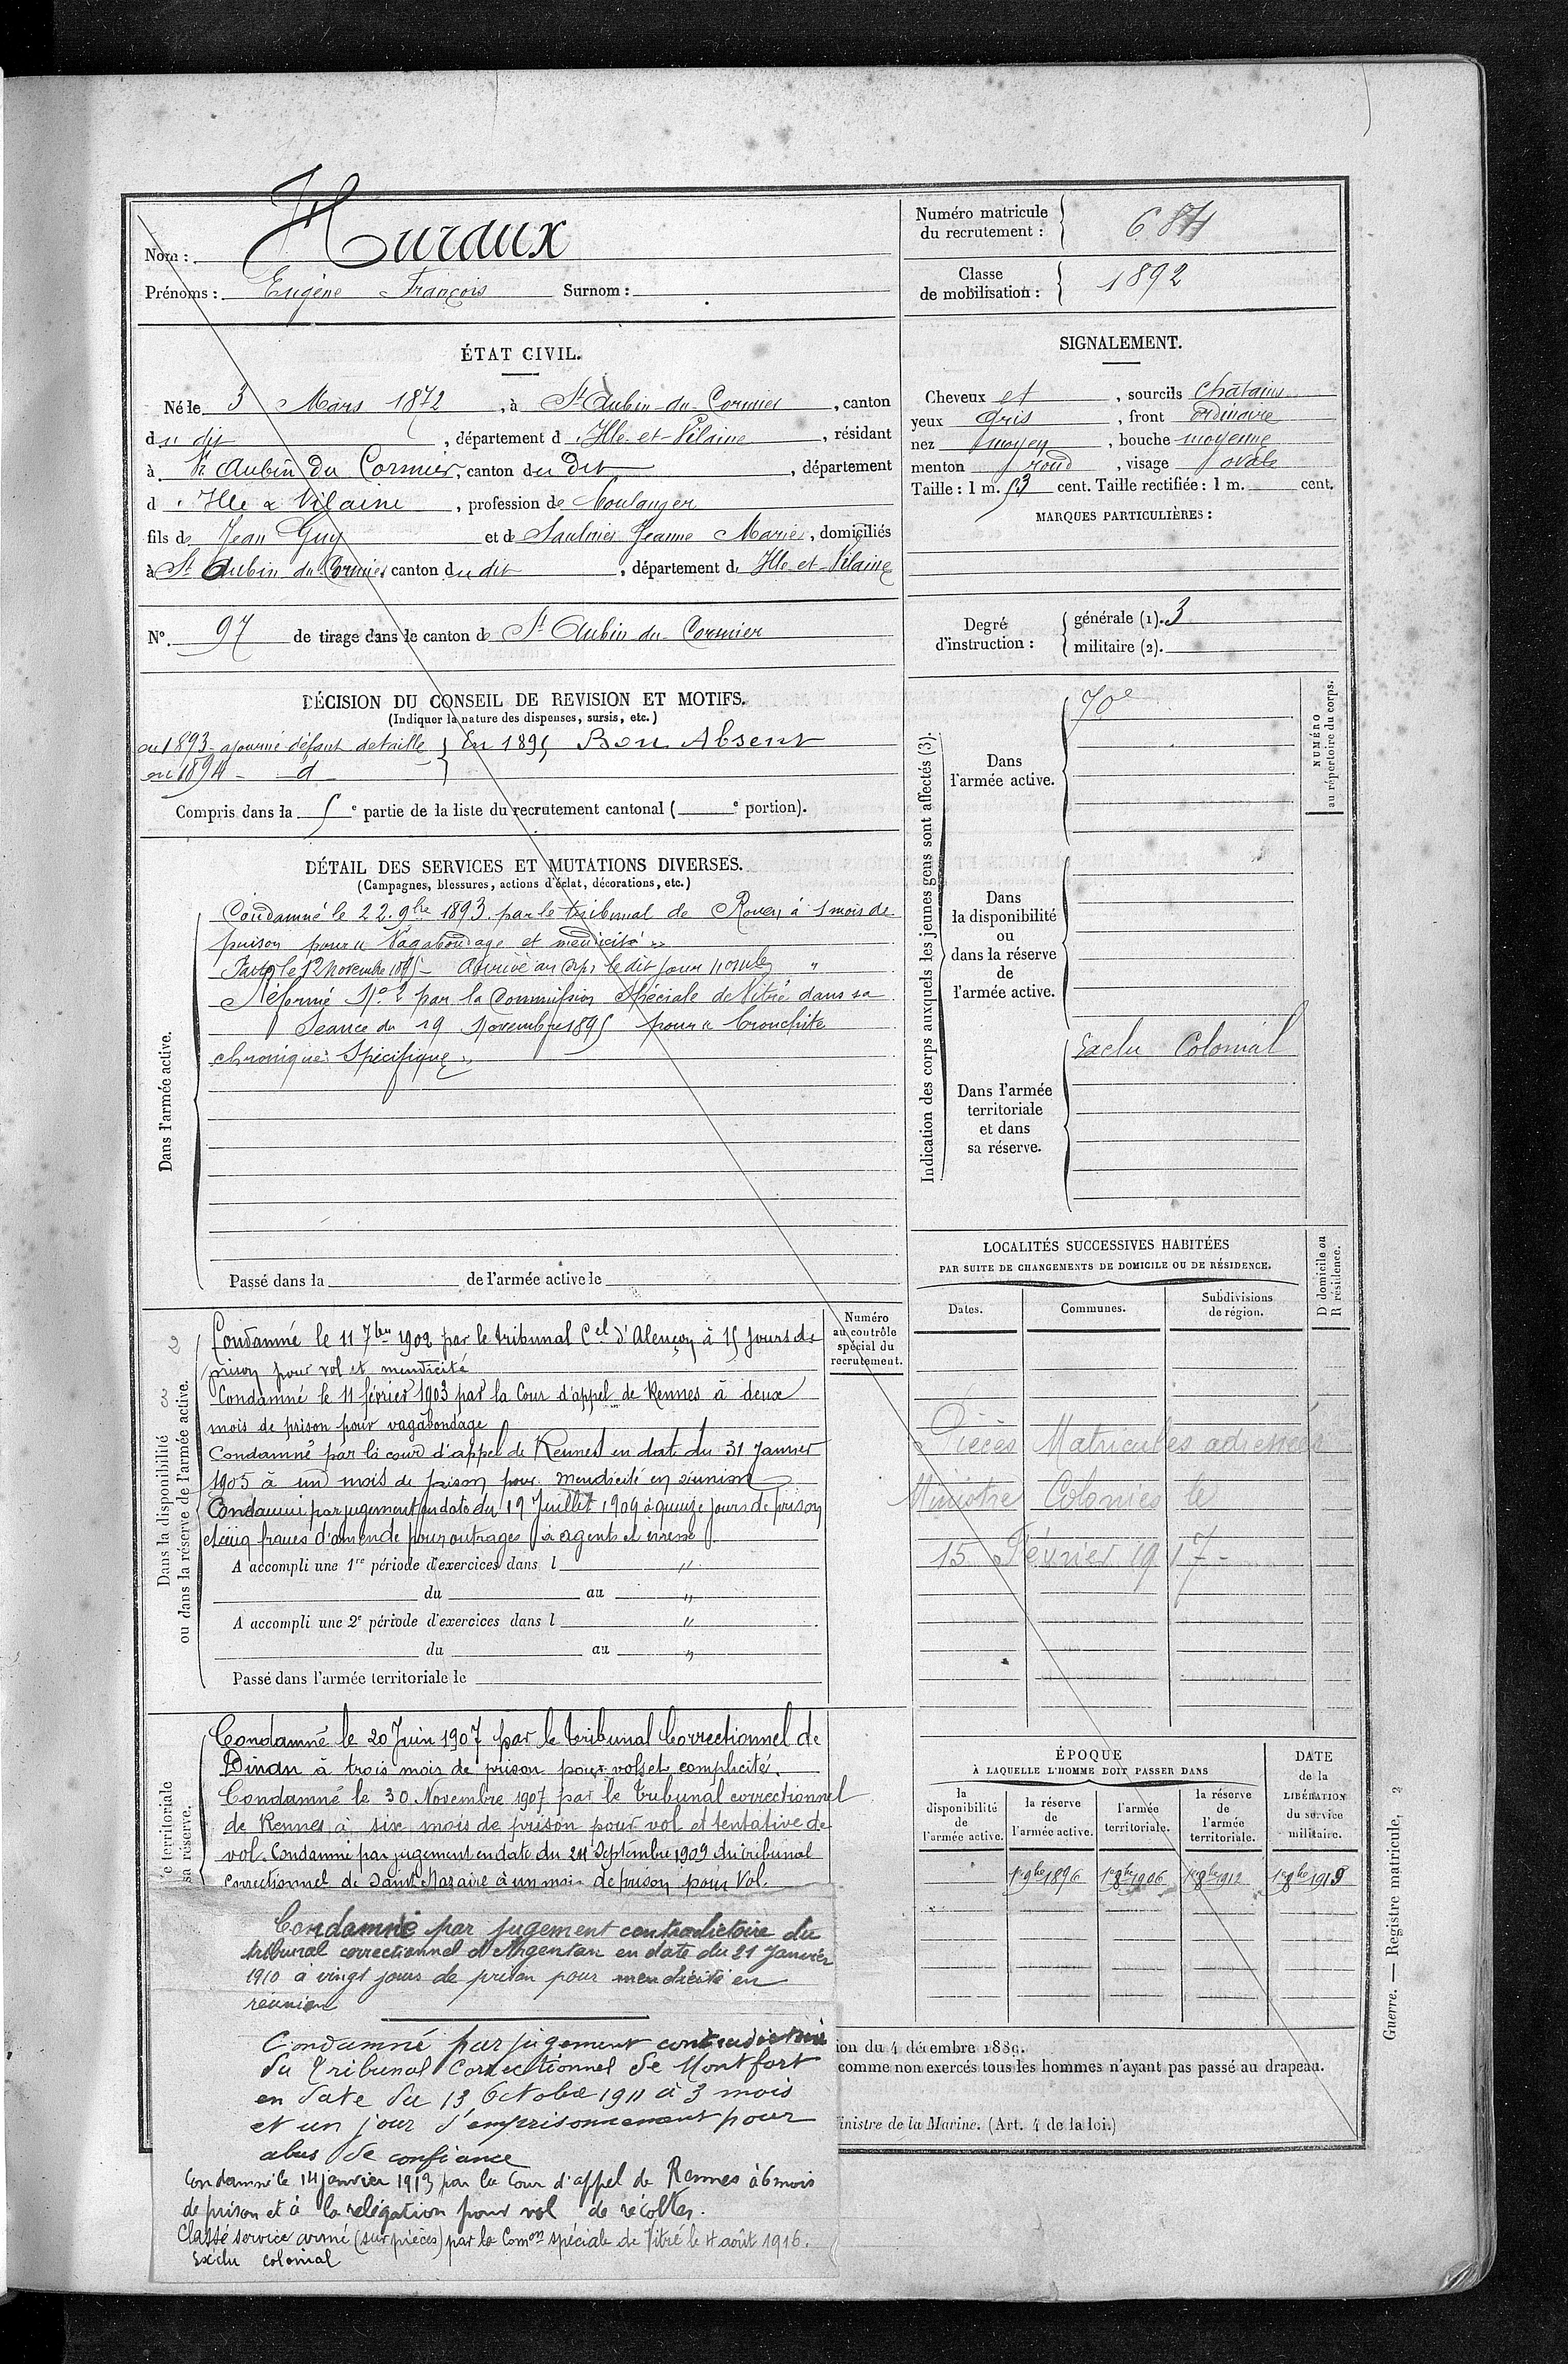 Nom : Huraux
Prénoms : Eugène François Surnom :
Numéro matricule du recrutement : 687
Classe de mobilisation : 1892
ÉTAT CIVIL.
Né le 3 Mars 1872, à St Aubin-du-Cormier, canton
du dit, département d'Ille-et-Vilaine, résidant
à St Aubin du Cormier, canton du Dit, département
d'Ille & Vilaine, profession de boulanger
fils de Jean Guy et de Saulnier Jeanne Marie, domiciliés
à St Aubin du Cormier canton du dit, département d'Ille-et-Vilaine
N° 97 de tirage dans le canton de St Aubin-du-Cormier
SIGNALEMENT.
Cheveux et, sourcils châtains
yeux gris, front ordinaire
nez moyen, bouche moyenne
menton rond, visage ovale
Taille : 1 m. 53 cent. Taille rectifiée : 1 m. cent.
MARQUES PARTICULIÈRES :
Degré d'instruction : générale (1). 3
militaire (2).
DÉCISION DU CONSEIL DE REVISION ET MOTIFS.
(Indiquer la nature des dispenses, sursis, etc.)
en 1893 - ajourné défaut de taille } En 1895 Bon Absent
en 1894 - d
Compris dans la 5e partie de la liste du recrutement cantonal ( e portion).
DÉTAIL DES SERVICES ET MUTATIONS DIVERSES.
(Campagnes, blessures, actions d'éclat, décorations, etc.)
Dans l'armée active.
Condamné le 22 9bre 1893 par le tribunal de Rouen à 1 mois de
prison pour « Vagabondage et mendicité »
le 12 Novembre 1895 - Arrivé au corps le dit jour
Réformé No 2 par la Commission Spéciale de Vitré dans sa
Séance du 19 Novembre 1895 pour « bronchite
chronique Spécifique »
Passé dans la de l'armée active le
Indication des corps auxquels les jeunes gens sont affectés (3).
NUMÉRO au répertoire du corps.
Dans l'armée active. 70e
Dans la disponibilité ou dans la réserve de l'armée active.
Dans l'armée territoriale et dans sa réserve. Exclu Colonial
LOCALITÉS SUCCESSIVES HABITÉES
PAR SUITE DE CHANGEMENTS DE DOMICILE OU DE RÉSIDENCE.
D domicile ou R résidence.
Dates. Communes. Subdivisions de région.
Pièces Matricules adressées
Ministre Colonies le
15 Février 1917 -
Dans la disponibilité ou dans la réserve de l'armée active.
Numéro au contrôle spécial du recrutement.
Condamné le 11 7bre 1902 par le tribunal Cel d'Alençon à 15 jours de
prison pour vol et mendicité
Condamné le 11 février 1903 par la Cour d'appel de Rennes à deux
mois de prison pour vagabondage
Condamné par la cour d'appel de Rennes en date du 31 Janvier
1905 à un mois de prison pour mendicité en réunion
Condamné par jugement en date du 19 Juillet 1909 à quinze jours de prison
et cinq francs d'amende pour outrages à agents et ivresse
A accompli une 1re période d'exercices dans l "
du au "
A accompli une 2e période d'exercices dans l "
du au "
Passé dans l'armée territoriale le
e territoriale
sa réserve.
Condamné le 20 Juin 1907 par le tribunal Correctionnel de
Dinan à trois mois de prison pour vols et complicité.
Condamné le 30 Novembre 1907 par le tribunal correctionnel
de Rennes à six mois de prison pour vol et tentative de
vol. Condamné par jugement en date du 24 Septembre 1909 du tribunal
correctionnel de Saint Nazaire à un mois de prison pour Vol.
Condamné par jugement contradictoire du
tribunal correctionnel d'Argentan en date du 21 Janvier
1910 à vingt jours de prison pour mendicité en
réunion
Condamné par jugement contradictoire
du Tribunal Correctionnel de Montfort
en date du 13 Octobre 1911 à 3 mois
et un jour d'emprisonnement pour
abus de confiance
Condamné le 14 janvier 1913 par la Cour d'appel de Rennes à 6 mois
de prison et à la relégation pour vol de récoltes.
Classé service armé (sur pièces) par la Comon spéciale de Vitré le 4 août 1916.
Exclu colonial
ÉPOQUE
À LAQUELLE L'HOMME DOIT PASSER DANS
DATE de la LIBÉRATION du service militaire.
la disponibilité de l'armée active. la réserve de l'armée active. l'armée territoriale. la réserve de l'armée territoriale.
1er 9bre 1896 1er 8bre 1906 1er 8bre 1912 1er 8bre 1918
ion du 4 décembre 1889.
comme non exercés tous les hommes n'ayant pas passé au drapeau.
inistre de la Marine. (Art. 4 de la loi.)
Guerre. — Registre matricule, 2